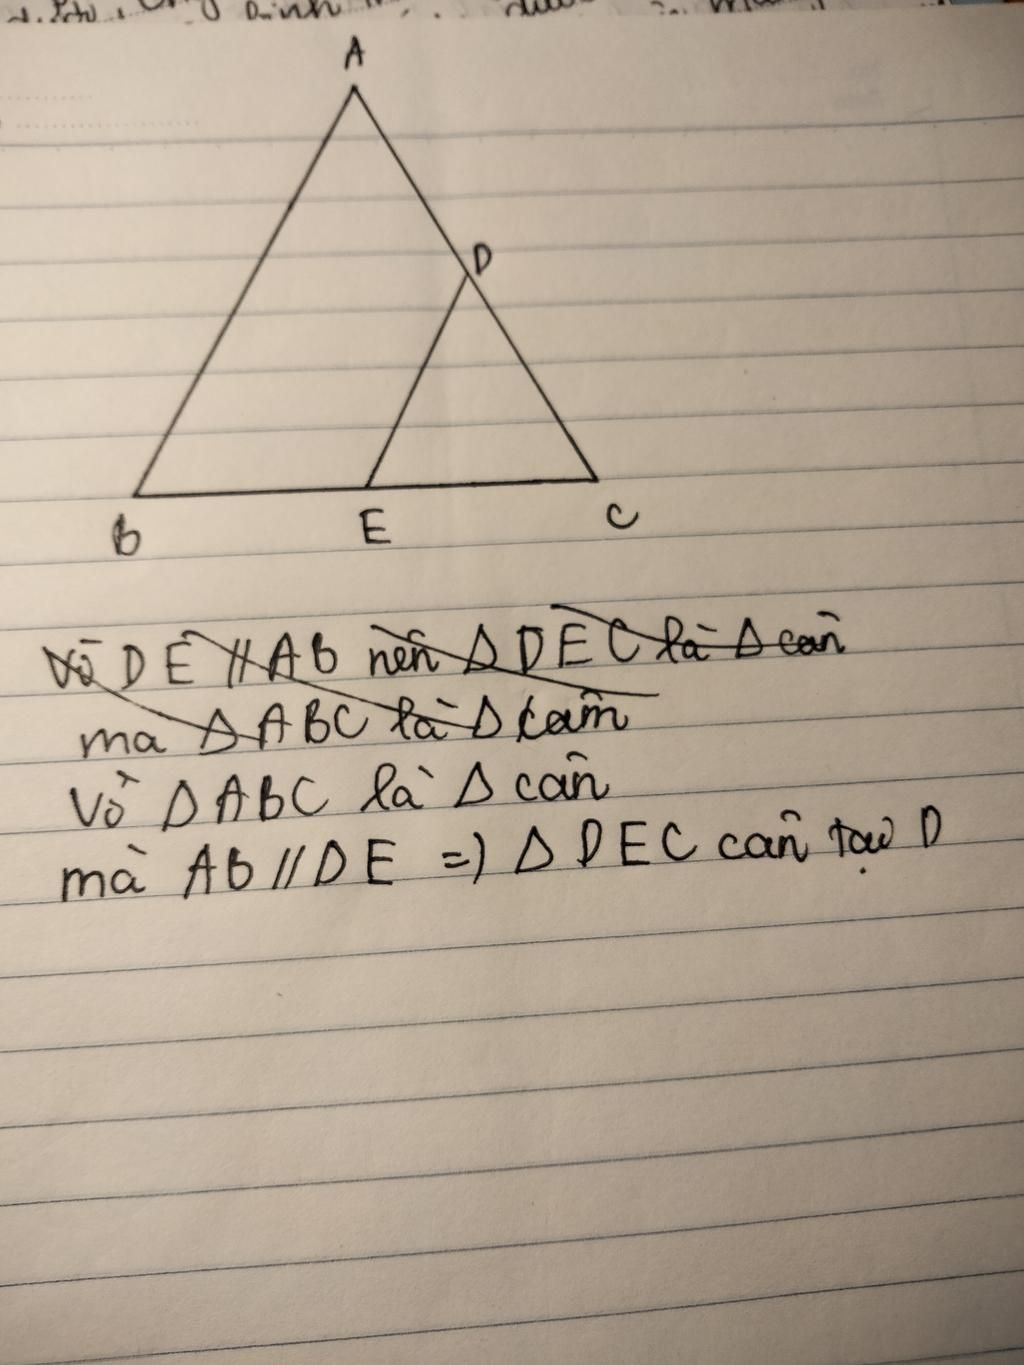 A
D
B
E
C
Vì DE // AB nên Δ DEC là Δ cân
ma Δ ABC là Δ cân
Vì Δ ABC là Δ cân
mà AB // DE =) Δ DEC cân tại D